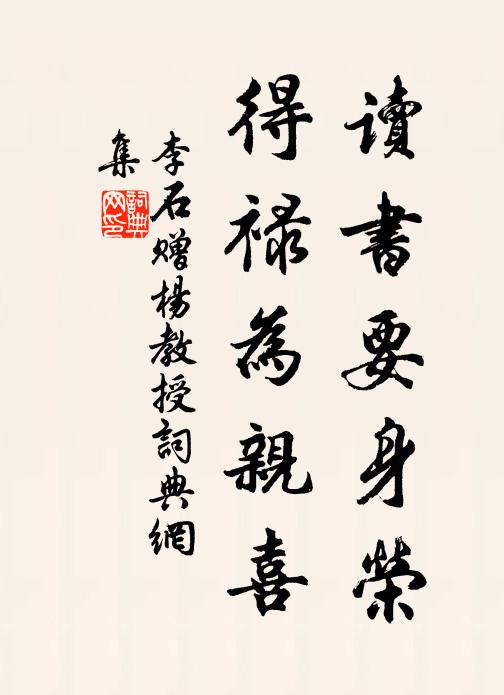 讀書要身榮
得祿為親喜
李石贈楊教授詞典網
集
詞典网印